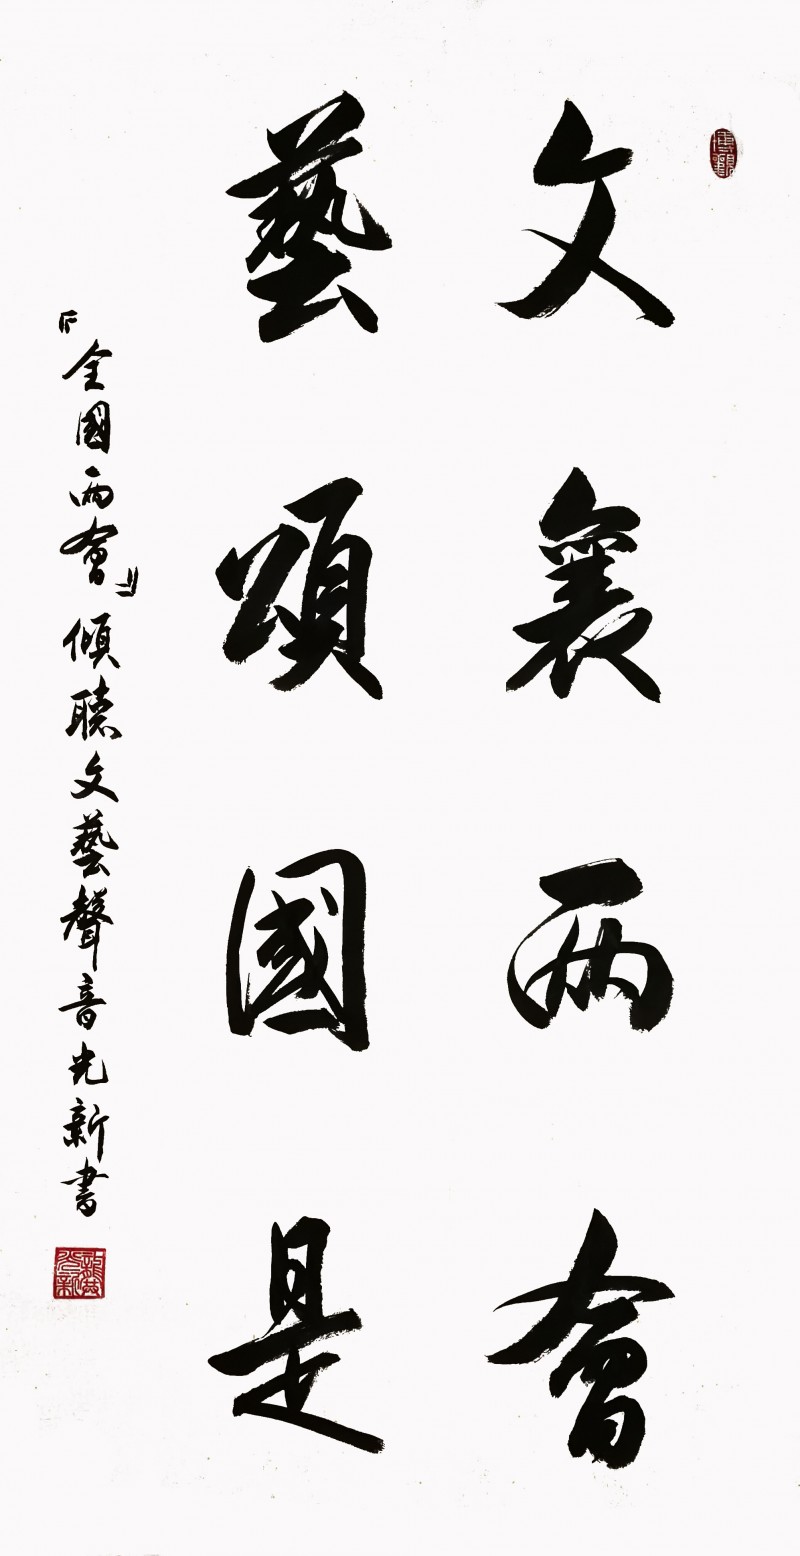 文襄兩會
藝頌國是
『全國兩會』傾聽文藝聲音光新書